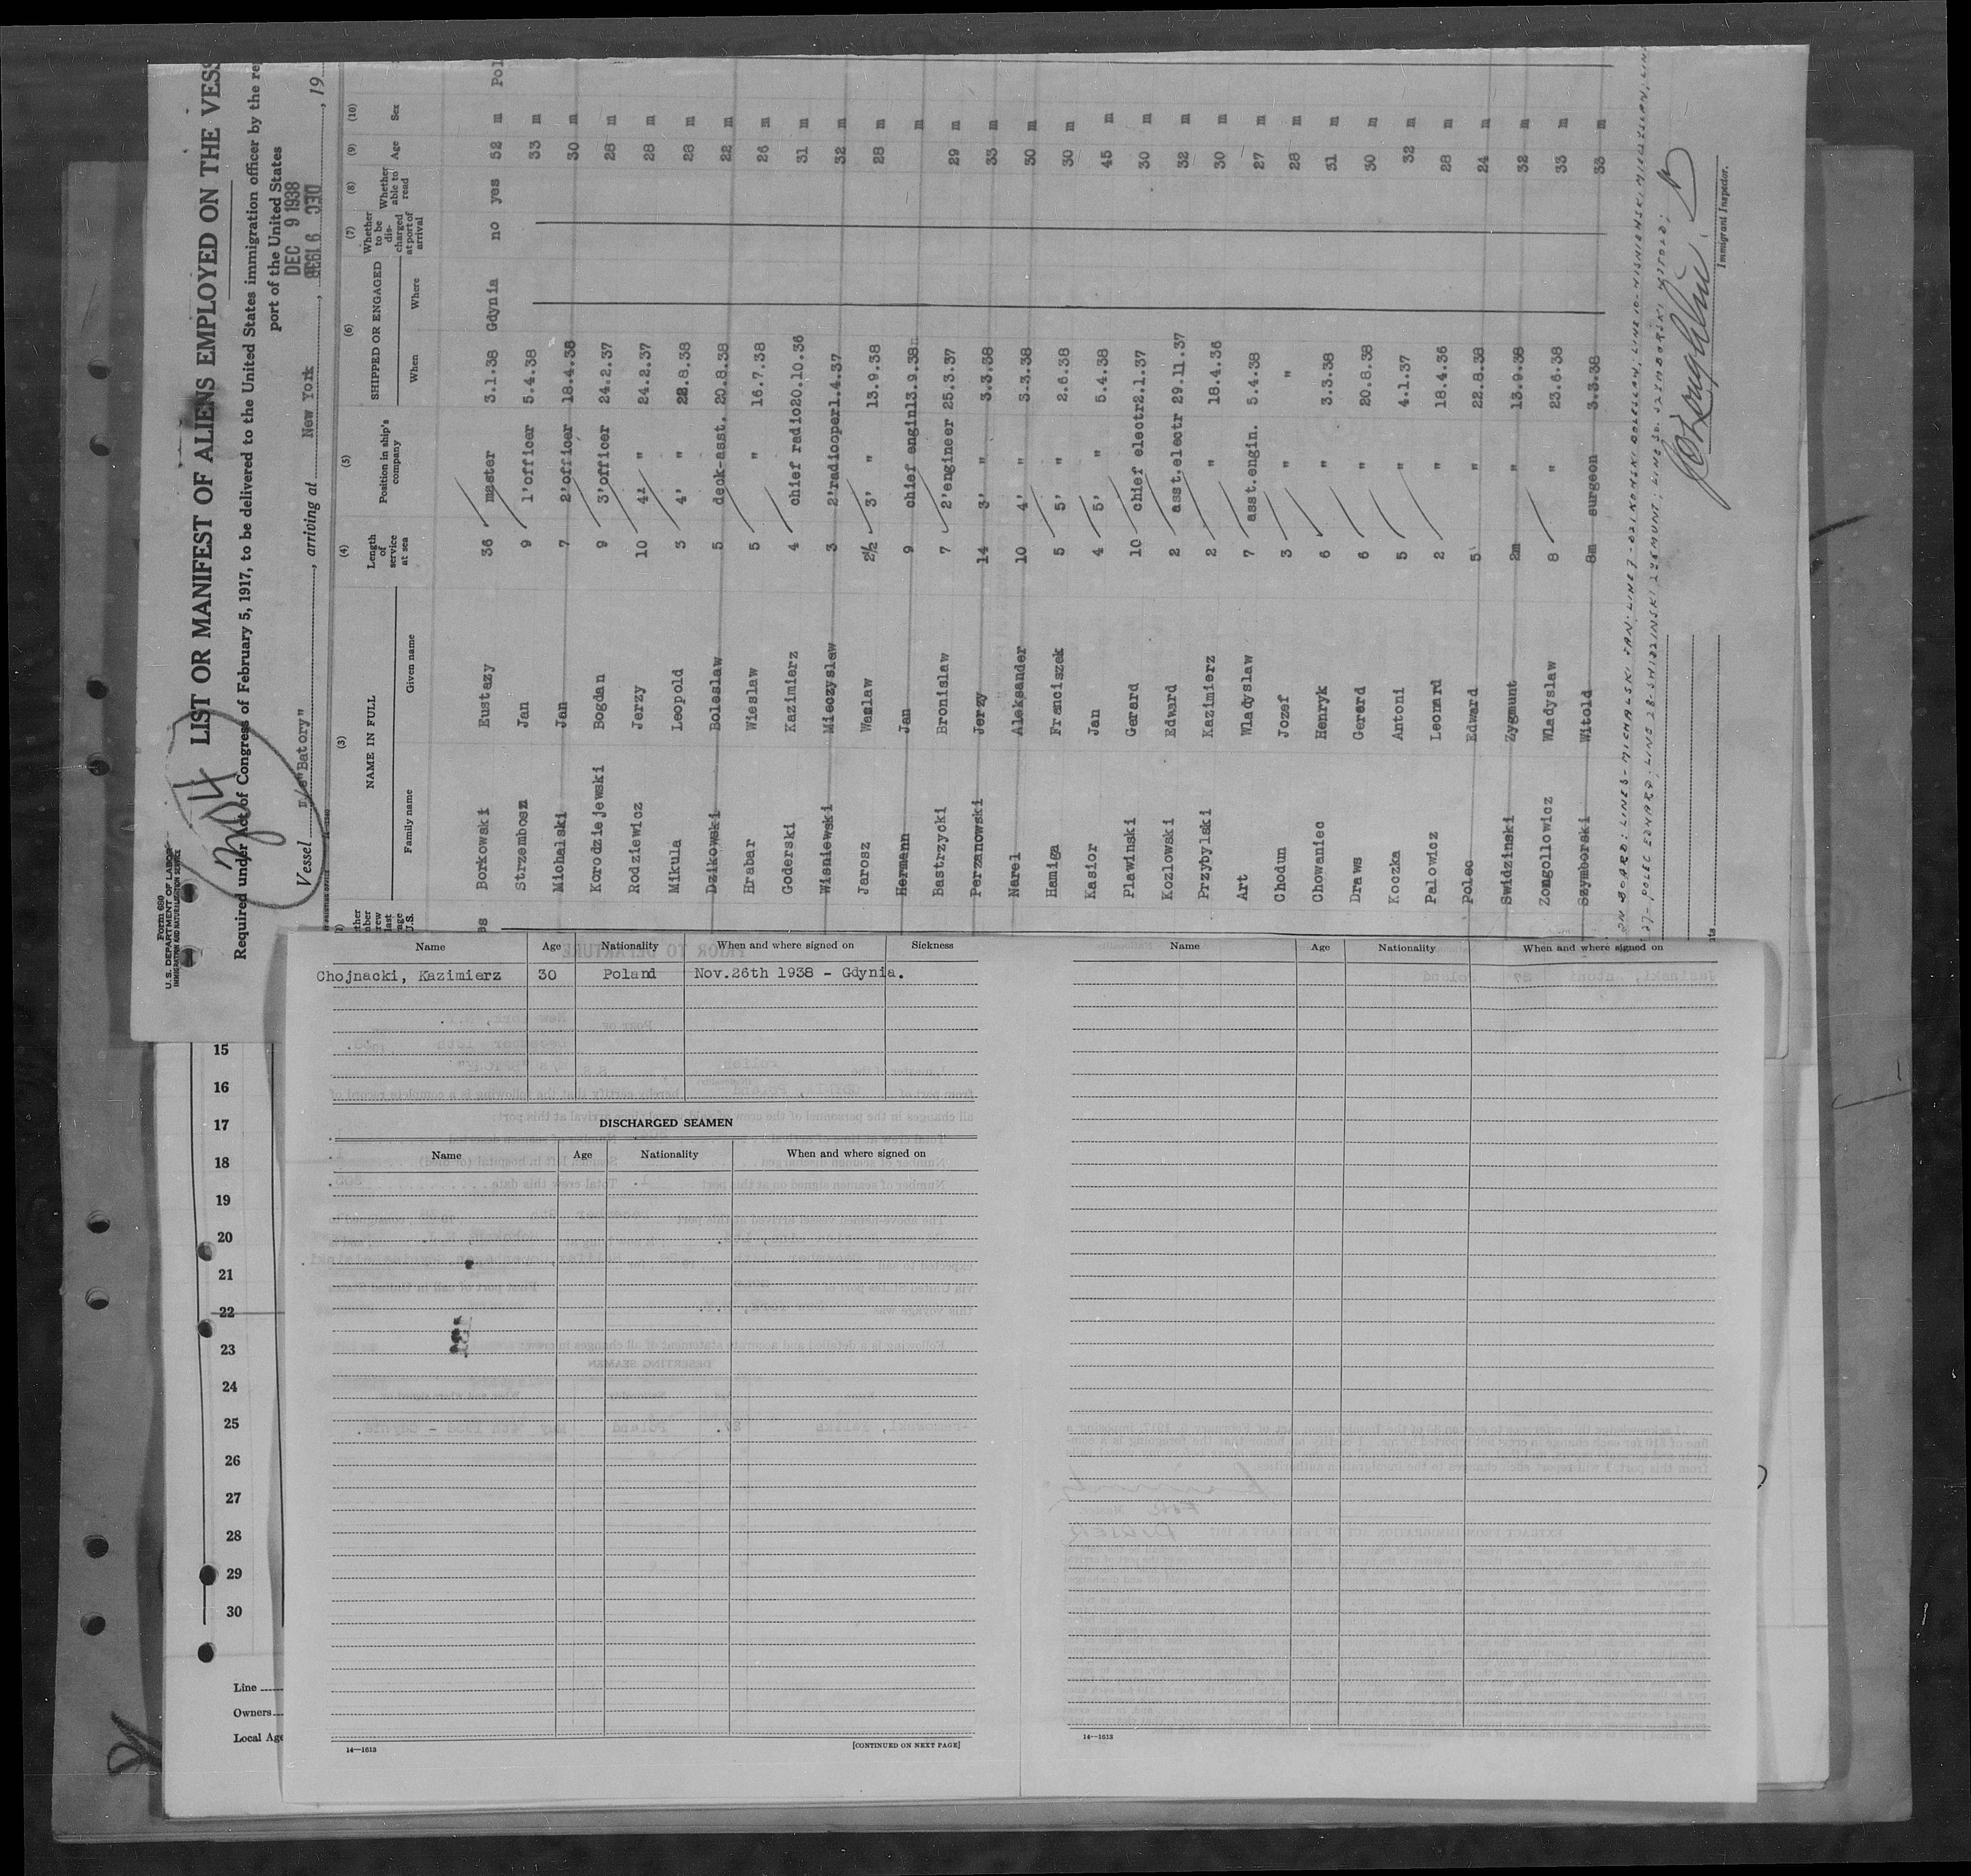 Form 680
U.S. DEPARTMENT OF LABOR
IMMIGRATION AND NATURALIZATION SERVICE
304
LIST OR MANIFEST OF ALIENS EMPLOYED ON THE VESS
Required under Act of Congress of February 5, 1917, to be delivered to the United States immigration officer by the re
port of the United States
Vessel m/s"Batory" , arriving at New York , DEC 9 1938 , 19
(3) (4) (5) (6) (7) (8) (9) (10)
NAME IN FULL Length of service at sea Position in ship's company SHIPPED OR ENGAGED Whether to be discharged at port of arrival Whether able to read Age Sex
Family name Given name When Where
Borkowski Eustazy 36 master 3.1.38 Gdynia no yes 52 m Pol
Strzembosz Jan 9 1'officer 5.4.38 33 m
Michalski Jan 7 2'officer 18.4.38 30 m
Korodziejewski Bogdan 9 3'officer 24.2.37 28 m
Rodziewicz Jerzy 10 4' " 24.2.37 28 m
Mikula Leopold 3 4' " 22.8.38 28 m
Dzikowski Boleslaw 5 deck-asst. 20.8.38 22 m
Hrabar Wieslaw 5 " 16.7.38 26 m
Goderski Kazimierz 4 chief radio 20.10.36 31 m
Wisniewski Mieczyslaw 3 2'radiooper 1.4.37 32 m
Jarosz Waclaw 2½ 3' " 13.9.38 28 m
Hermann Jan 9 chief engin 13.9.38 m
Bastrzycki Bronislaw 7 2'engineer 25.3.37 29 m
Perzanowski Jerzy 14 3' " 3.3.38 33 m
Narel Aleksander 10 4' " 3-3.38 30 m
Hamiga Franciszek 5 5' " 2.6.38 30 m
Kasior Jan 4 5' " 5.4.38 45 m
Plawinski Gerard 10 chief electr 2.1.37 30 m
Kozlowski Edward 2 asst.electr 29.11.37 32 m
Przybylski Kazimierz 2 " 18.4.36 30 m
Art Wladyslaw 7 asst.engin. 5.4.38 27 m
Chodun Jozef 3 " " 28 m
Chowaniec Henryk 6 " 3.3.38 31 m
Draws Gerard 6 " 20.8.38 30 m
Koczka Antoni 5 " 4.1.37 32 m
Palowicz Leonard 2 " 18.4.36 28 m
Polec Edward 5 " 22.8.38 24 m
Swidzinski Zygmunt 2m " 13.9.38 32 m
Zongollowicz Wladyslaw 8 " 23.6.38 33 m
Szymborski Witold 8m surgeon 3.3.38 33 m
Immigrant Inspector.
Name Age Nationality When and where signed on Sickness
Chojnacki, Kazimierz 30 Poland Nov.26th 1938 - Gdynia.
DISCHARGED SEAMEN
Name Age Nationality When and where signed on
14—1613
[CONTINUED ON NEXT PAGE]
Name Age Nationality When and where signed on
14—1613
15
16
17
18
19
20
21
22
23
24
25
26
27
28
29
30
Line
Owners
Local Age